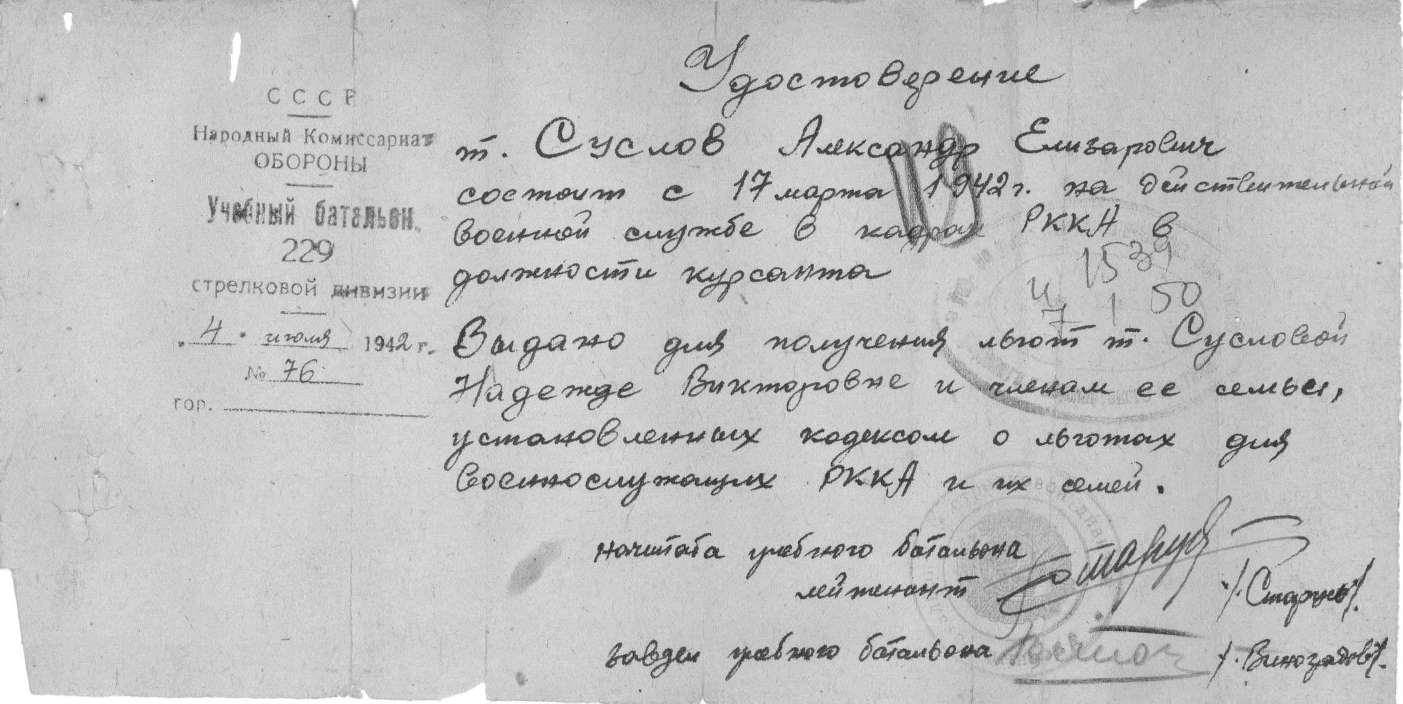 СССР
Народный Комиссариат
ОБОРОНЫ
Учебный батальон.
229
стрелковой дивизии
"4" июля 1942 г.
№ 76
гор.
Удостоверение
т. Суслов Александр Елизарович
состоит с 17 марта 1942 г. на действительной
военной службе в кадрах РККА в
должности курсанта
Выдано для получения льгот т. Сусловой
Надежде Викторовне и членам ее семьи,
установленных кодексом о льготах для
военнослужащих РККА и их семей.
начштаба учебного батальона
лейтенант
завдел учебного батальона
/Виноградов/
1539
50